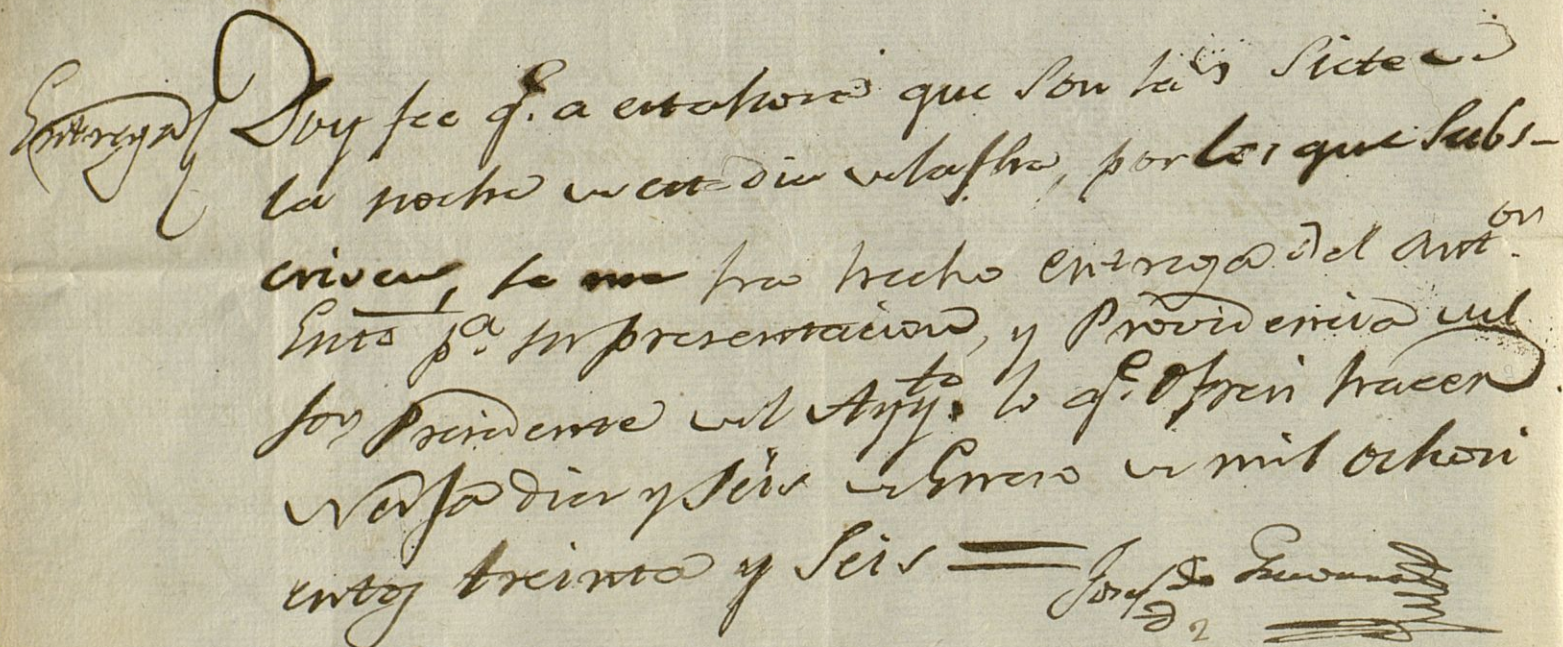 Entrega Doy fee q.e a esta hora que son las siete de
la noche de este dia de la fha, por los que subs-
criven, se me ha hecho entrega del ant.or
Escrito p.a su presentacion, y Providencia del
Sor Presidente del Ayy.to lo q.e Ofreci hacer
diez y seis de Enero de mil ochosi
entos treinta y seis = Josef